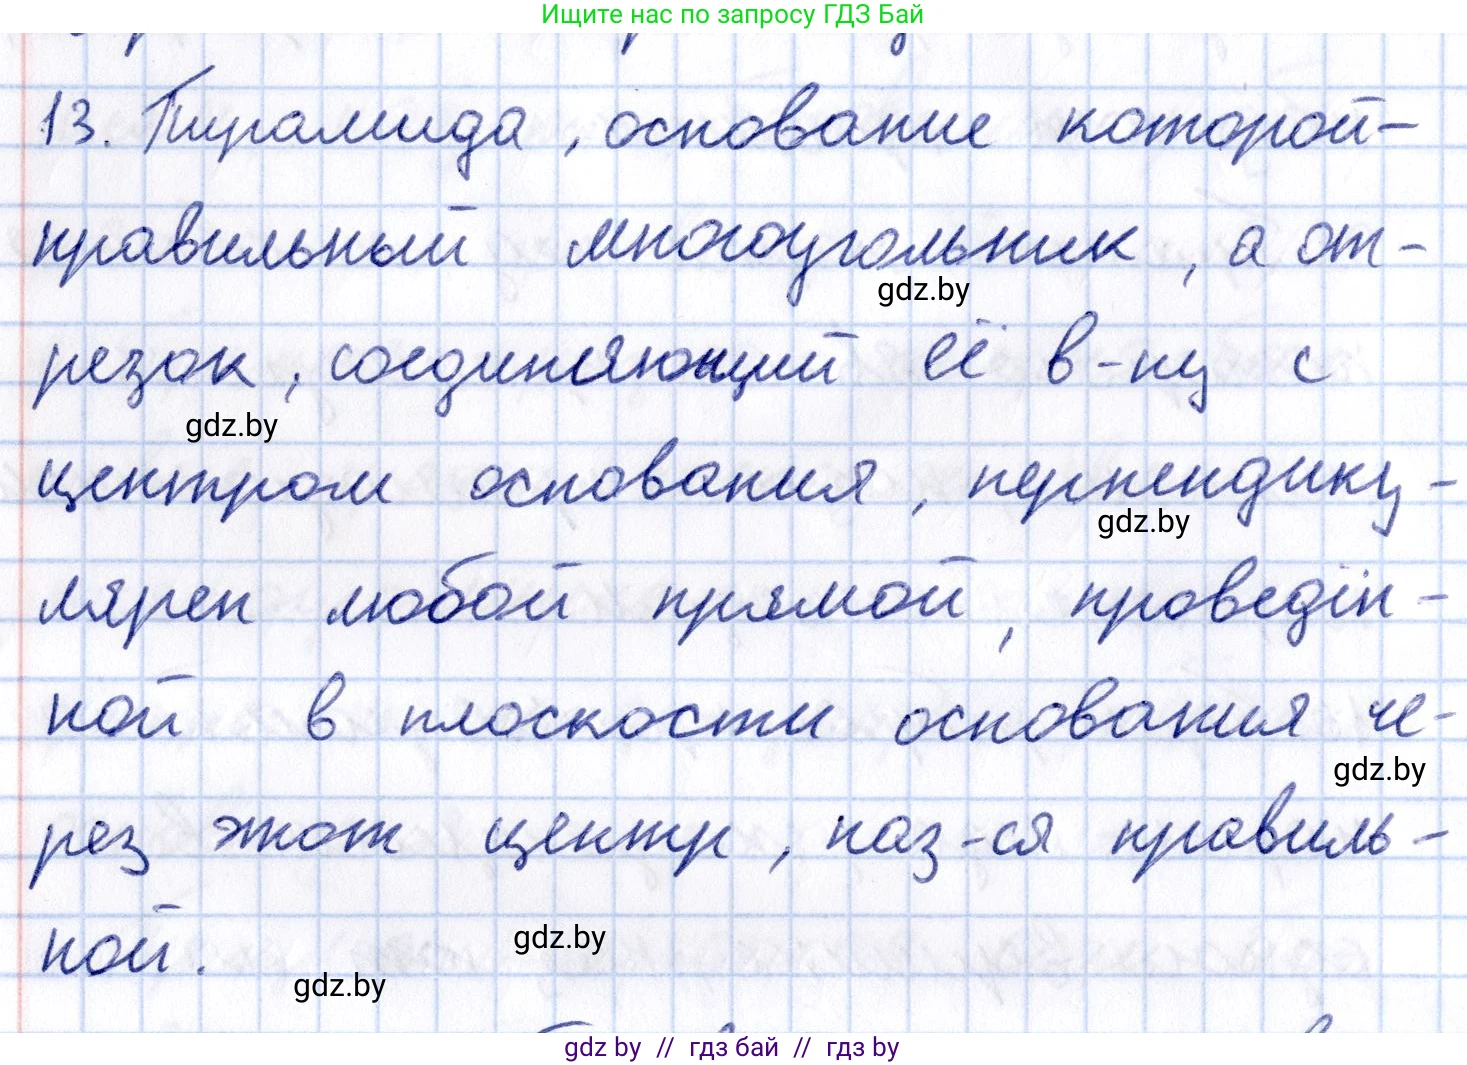 Ищите нас по запросу ГДЗ Бай
13. Пирамида, основание которой-
правильный многоугольник, а от-
gdz.by
резок, соединяющий её в-ну с
gdz.by
центром основания, перпендику-
gdz.by
лярен любой прямой, проведён-
ной в плоскости основания че-
gdz.by
рез этот центр, наз-ся правиль-
ной.
gdz.by
gdz.by
gdz by // гдз бай // гдз by